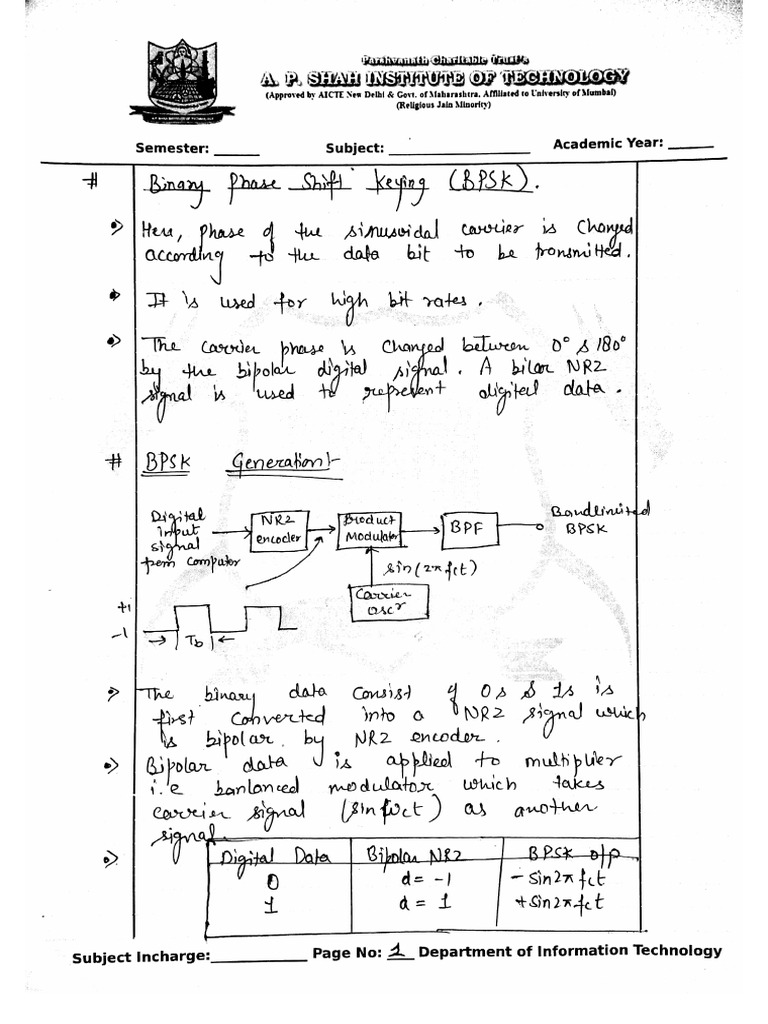 Parshvanath Charitable Trust's
A. P. SHAH INSTITUTE OF TECHNOLOGY
(Approved by AICTE New Delhi & Govt. of Maharashtra, Affiliated to University of Mumbai)
(Religious Jain Minority)
Semester: ______ Subject: ______________ Academic Year: ______
# Binary Phase Shift Keying (BPSK).
Here, phase of the sinusoidal carrier is Changed
according to the data bit to be transmitted.
It is used for high bit rates.
The carrier phase is changed between 0° & 180°
by the bipolar digital signal. A bilar NRZ
signal is used to represent digital data.
# BPSK Generation:-
Digital
input
signal
from computer
NRZ
encoder
Product
Modulator
BPF
Bandlimited
BPSK
sin(2πfct)
Carrier
oscr
+1
-1
Tb
The binary data consist of 0s & 1s is
first converted into a NRZ signal which
is bipolar by NRZ encoder.
Bipolar data is applied to multiplier
i.e banlanced modulator which takes
carrier signal (sin wct) as another
signal.
Digital Data Bipolar NRZ BPSK o/p
0 d = -1 - sin2πfct
1 d = 1 + sin2πfct
Subject Incharge:____________ Page No: 1 Department of Information Technology